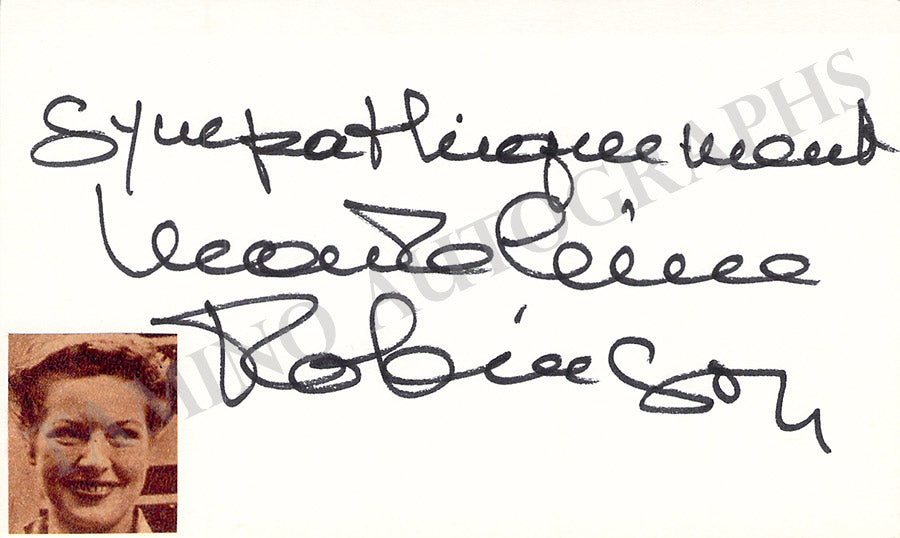 Sympathiquement
Madeleine
Robinson
TAMINO AUTOGRAPHS